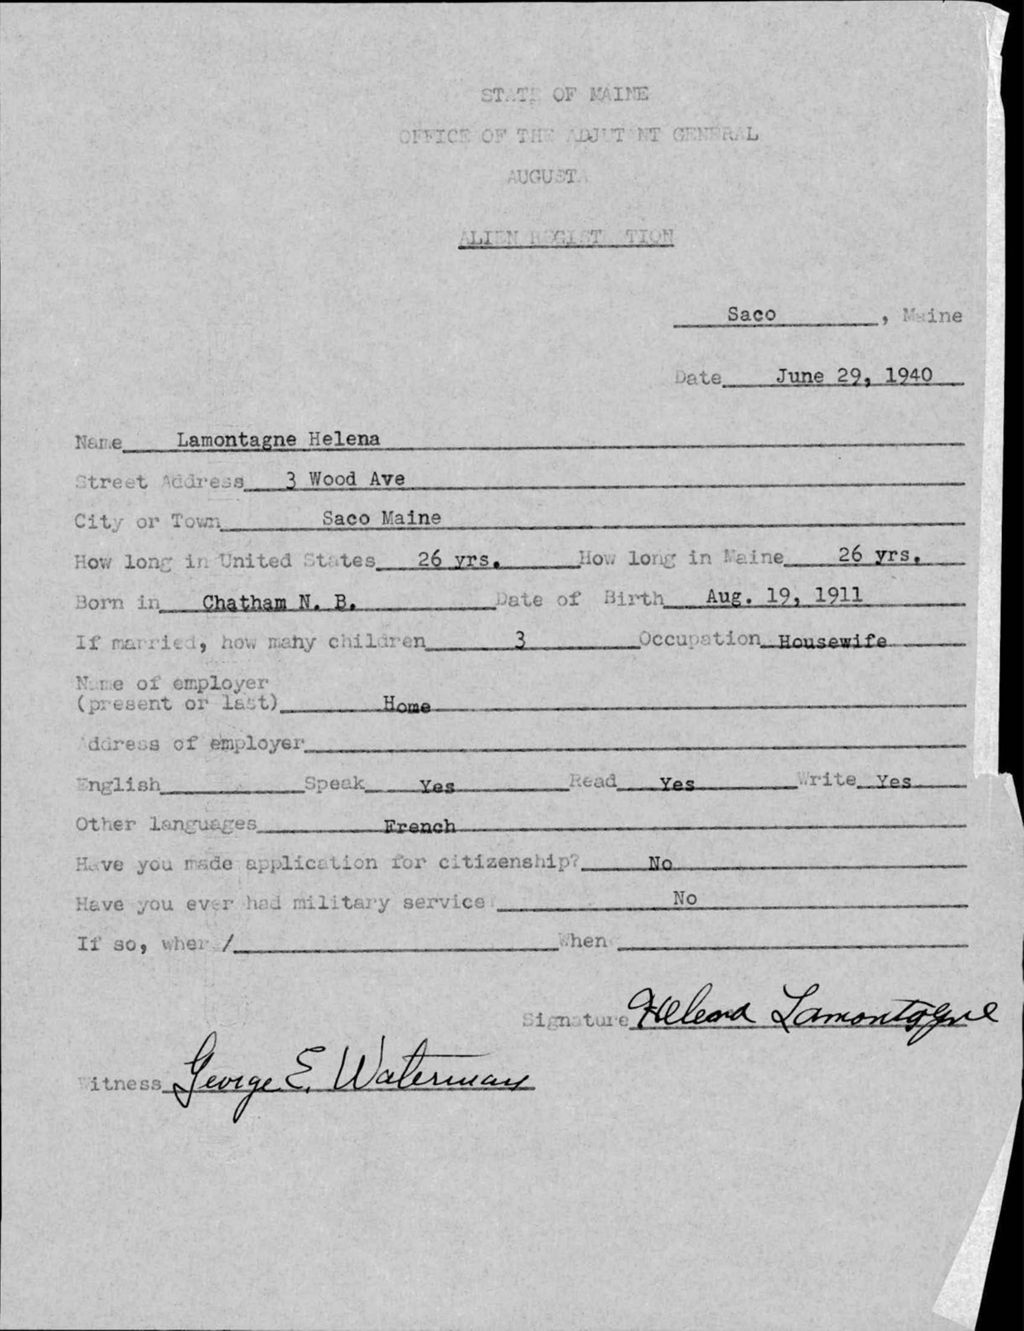 STATE OF MAINE
OFFICE OF THE ADJUTANT GENERAL
AUGUSTA
ALIEN REGISTRATION
Saco, Maine
Date June 29, 1940
Name Lamontagne Helena
Street Address 3 Wood Ave
City or Town Saco Maine
How long in United States 26 yrs. How long in Maine 26 yrs.
Born in Chatham N. B. Date of Birth Aug. 19, 1911
If married, how many children 3 Occupation Housewife
Name of employer
(present or last) Home
Address of employer
English Speak Yes Read Yes Write Yes
Other languages French
Have you made application for citizenship? No
Have you ever had military service? No
If so, where / When
Signature Helena Lamontagne
Witness George E. Waterman